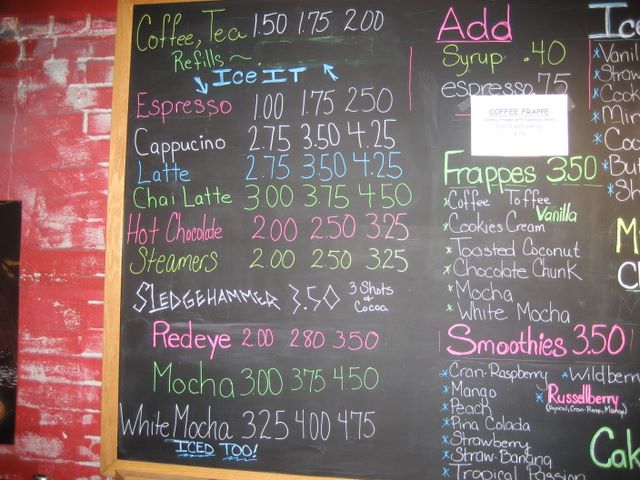 Coffee, Tea 1.50 1.75 2.00
Refills ~
ICE IT
Espresso 1.00 1.75 2.50
Cappucino 2.75 3.50 4.25
Latte 2.75 3.50 4.25
Chai Latte 3.00 3.75 4.50
Hot Chocolate 2.00 2.50 3.25
Steamers 2.00 2.50 3.25
SLEDGEHAMMER 3.50 3 Shots & Cocoa
Redeye 2.00 2.80 3.50
Mocha 3.00 3.75 4.50
White Mocha 3.25 4.00 4.75
ICED TOO!
Add
Syrup .40
espresso .75
COFFEE FRAPPE
Frappes 3.50
*Coffee Toffee
Vanilla
*Cookies Cream
*Toasted Coconut
*Chocolate Chunk
*Mocha
*White Mocha
Smoothies 3.50
*Cran-Raspberry *Wildberry
*Mango *Russellberry
*Peach
*Pina Colada
*Strawberry
*Straw-Banana
*Tropical Passion
Ice
*Vanil
*Straw
*Cook
*Min
*Coo
*But
*Sh
M
Ch
Cak